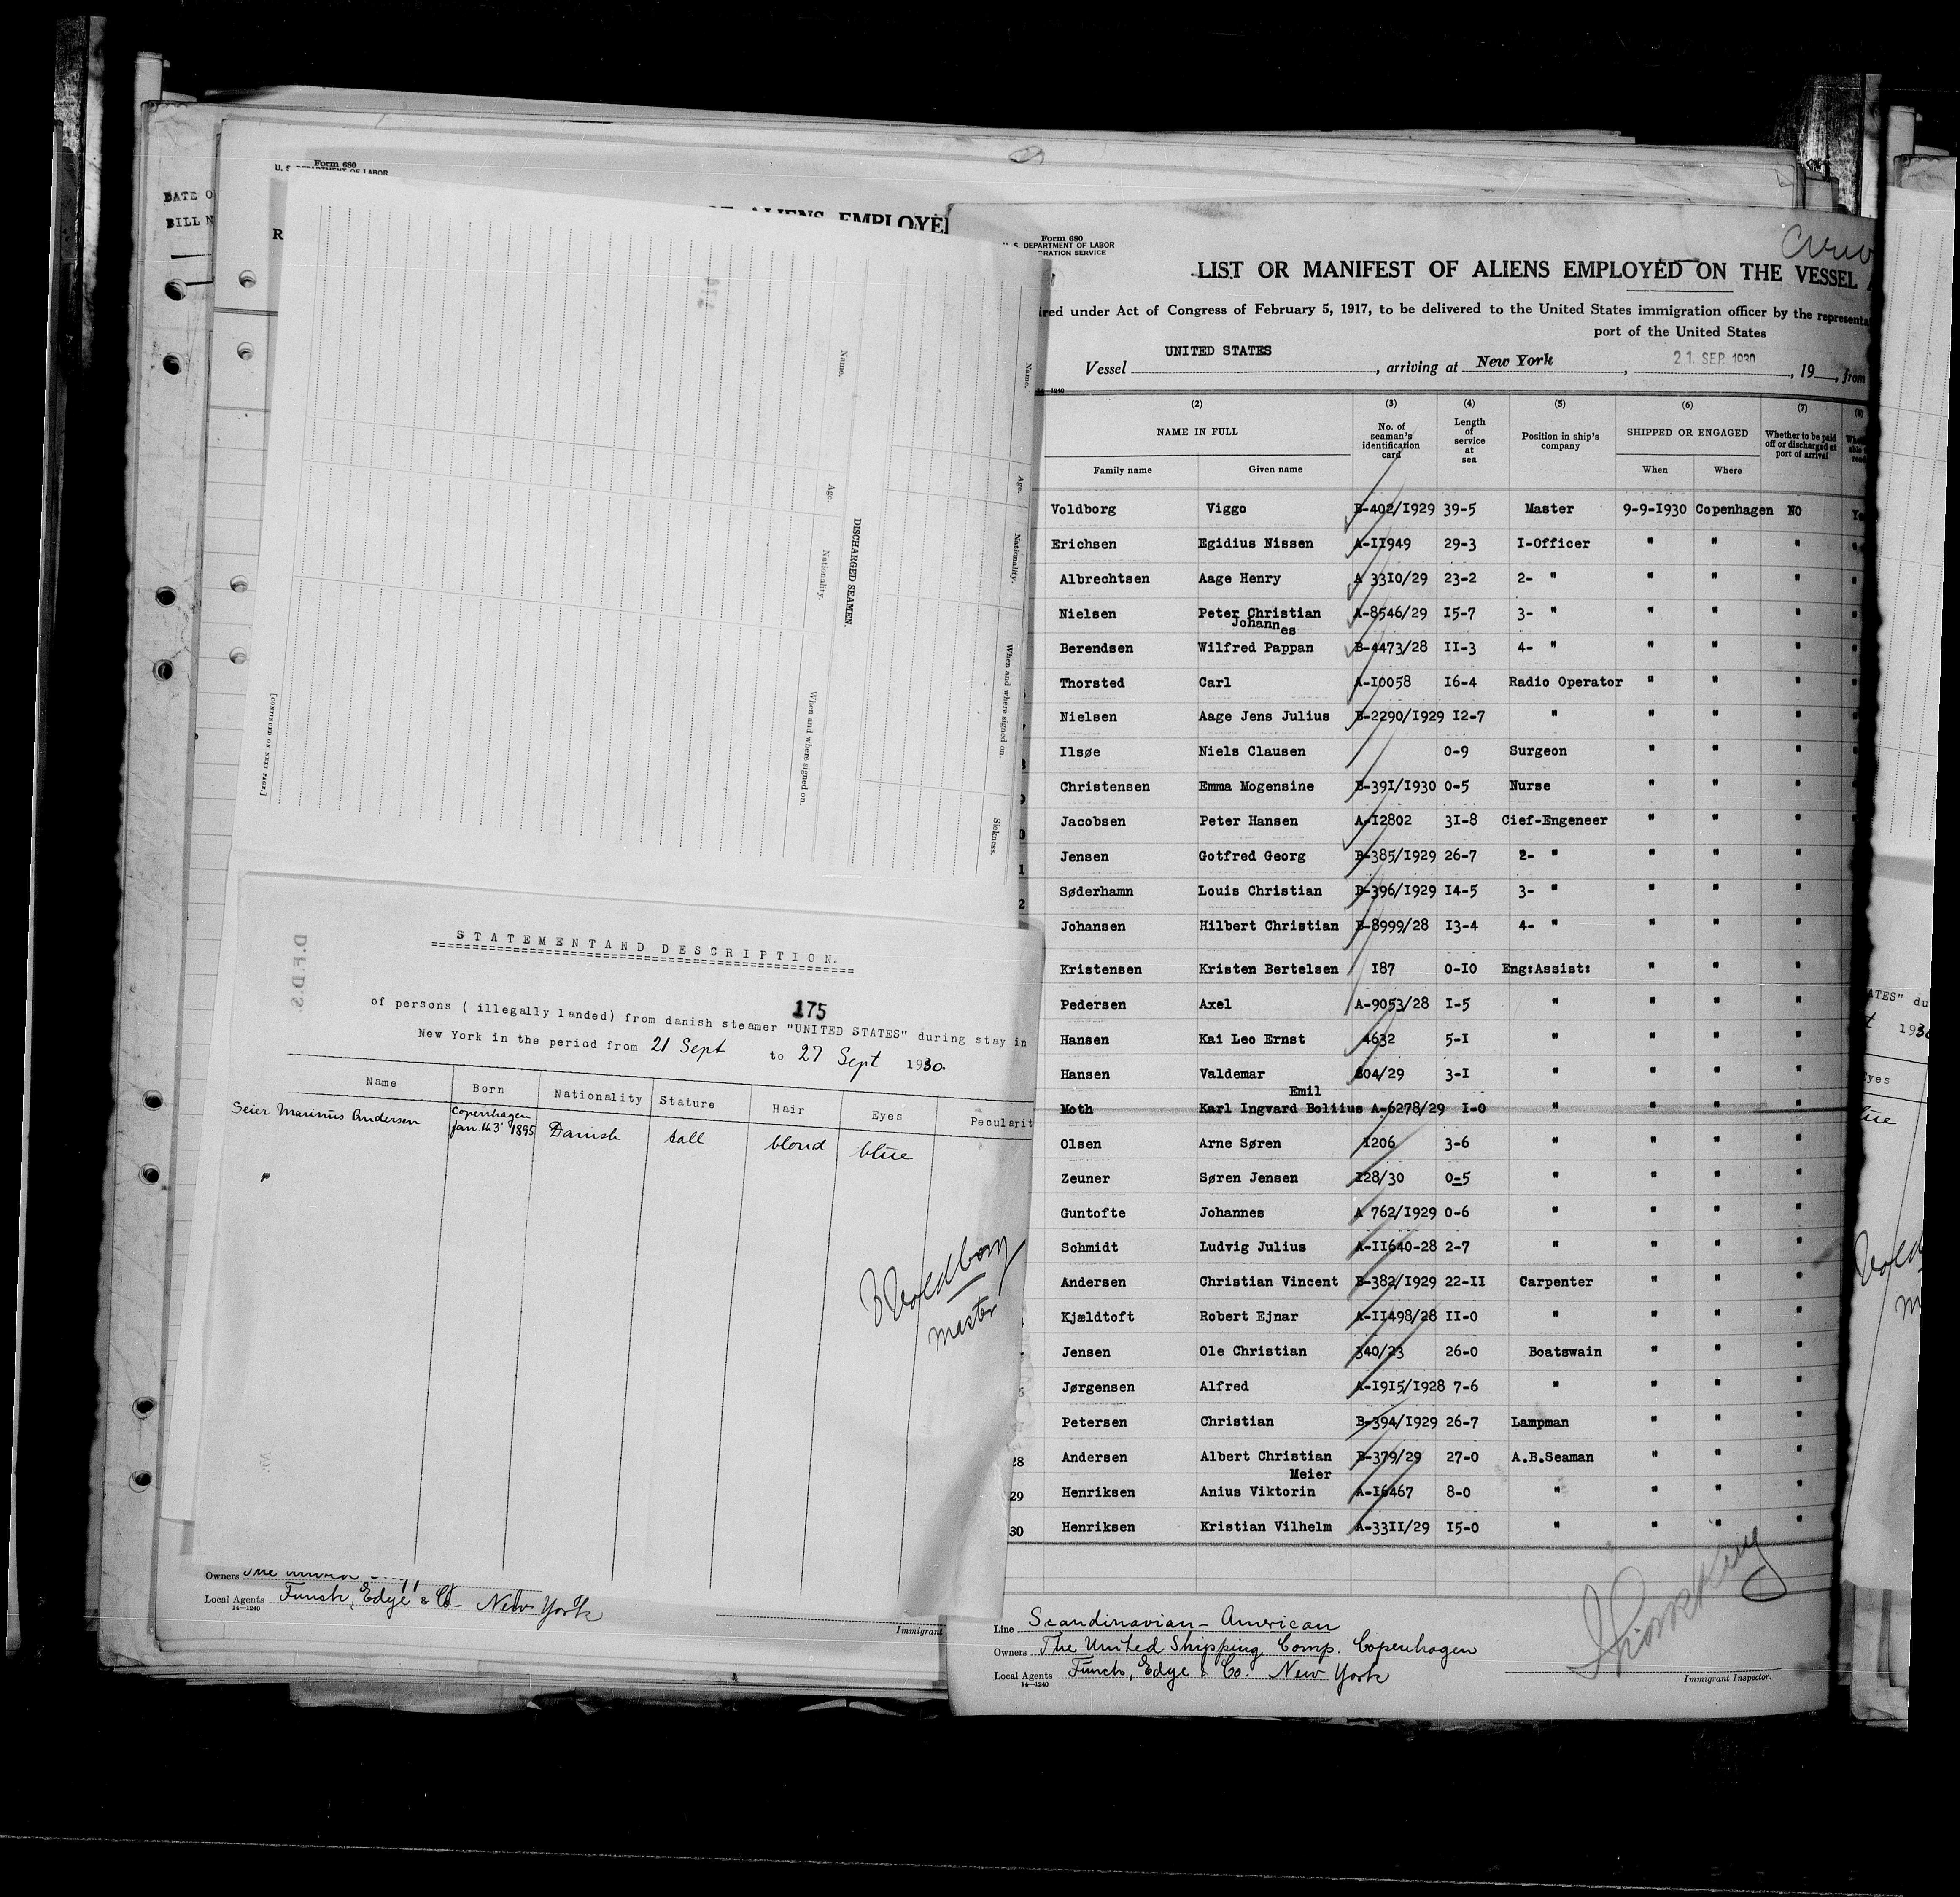 Form 680
DATE O
BILL N
R
OF ALIENS EMPLOYED
Name.
Age.
Nationality.
When and where signed on.
Sickness.
DISCHARGED SEAMEN.
Name.
Age.
Nationality.
When and where signed on.
[CONTINUED ON NEXT PAGE.]
D.F.D.S.
STATEMENT AND DESCRIPTION.
175
of persons ( illegally landed) from danish steamer "UNITED STATES" during stay in
New York in the period from 21 Sept to 27 Sept 1930.
Name Born Nationality Stature Hair Eyes Pecularit
Seier Marinus Andersen Copenhagen Danish tall blond blue
Jan. 1895
"
Voldborg
master
Owners
Local Agents Funch, Edye & Co- New York
14—1240
Immigrant
Form 680
U. S. DEPARTMENT OF LABOR
RATION SERVICE
LIST OR MANIFEST OF ALIENS EMPLOYED ON THE VESSEL
ired under Act of Congress of February 5, 1917, to be delivered to the United States immigration officer by the representa
port of the United States
Vessel UNITED STATES, arriving at New York, 21. SEP. 1930, 19__, from
(2) (3) (4) (5) (6) (7) (8)
NAME IN FULL No. of seaman's identification card Length of service at sea Position in ship's company SHIPPED OR ENGAGED Whether to be paid off or discharged at port of arrival
Family name Given name When Where
Voldborg Viggo B-402/1929 39-5 Master 9-9-1930 Copenhagen NO Ye
Erichsen Egidius Nissen A-11949 29-3 I-Officer " " " "
Albrechtsen Aage Henry A 3310/29 23-2 2- " " " " "
Nielsen Peter Christian A-8546/29 15-7 3- " " " " "
Johannes
Berendsen Wilfred Pappan B-4473/28 II-3 4- " " " " "
Thorsted Carl A-10058 16-4 Radio Operator " " " "
Nielsen Aage Jens Julius B-2290/1929 12-7 " " " " "
Ilsøe Niels Clausen 0-9 Surgeon " " " "
Christensen Emma Mogensine B-391/1930 0-5 Nurse " " " "
Jacobsen Peter Hansen A-12802 31-8 Cief-Engeneer " " " "
Jensen Gotfred Georg B-385/1929 26-7 2- " " " " "
Søderhamn Louis Christian B-396/1929 14-5 3- " " " " "
Johansen Hilbert Christian B-8999/28 13-4 4- " " " " "
Kristensen Kristen Bertelsen 187 0-10 Eng:Assist: " " " "
Pedersen Axel A-9053/28 I-5 " " " " "
Hansen Kai Leo Ernst 4632 5-I " " " " "
Hansen Valdemar 804/29 3-I " " " " "
Emil
Moth Karl Ingvard Bolius A-6278/29 I-0 " " " " "
Olsen Arne Søren 1206 3-6 " " " " "
Zeuner Søren Jensen 128/30 0-5 " " " " "
Guntofte Johannes A 762/1929 0-6 " " " " "
Schmidt Ludvig Julius A-11640-28 2-7 " " " " "
Andersen Christian Vincent B-382/1929 22-II Carpenter " " " "
Kjældtoft Robert Ejnar A-11498/28 II-0 " " " " "
Jensen Ole Christian 340/23 26-0 Boatswain " " " "
Jørgensen Alfred A-1915/1928 7-6 " " " " "
Petersen Christian B-394/1929 26-7 Lampman " " " "
28 Andersen Albert Christian B-379/29 27-0 A.B.Seaman " " " "
Meier
29 Henriksen Anius Viktorin A-16467 8-0 " " " " "
30 Henriksen Kristian Vilhelm A-3311/29 15-0 " " " "
Line Scandinavian-American
Owners The United Shipping Comp. Copenhagen
Local Agents Funch, Edye & Co. New York
14—1240
Immigrant Inspector.
ATES" du
1930
Eyes